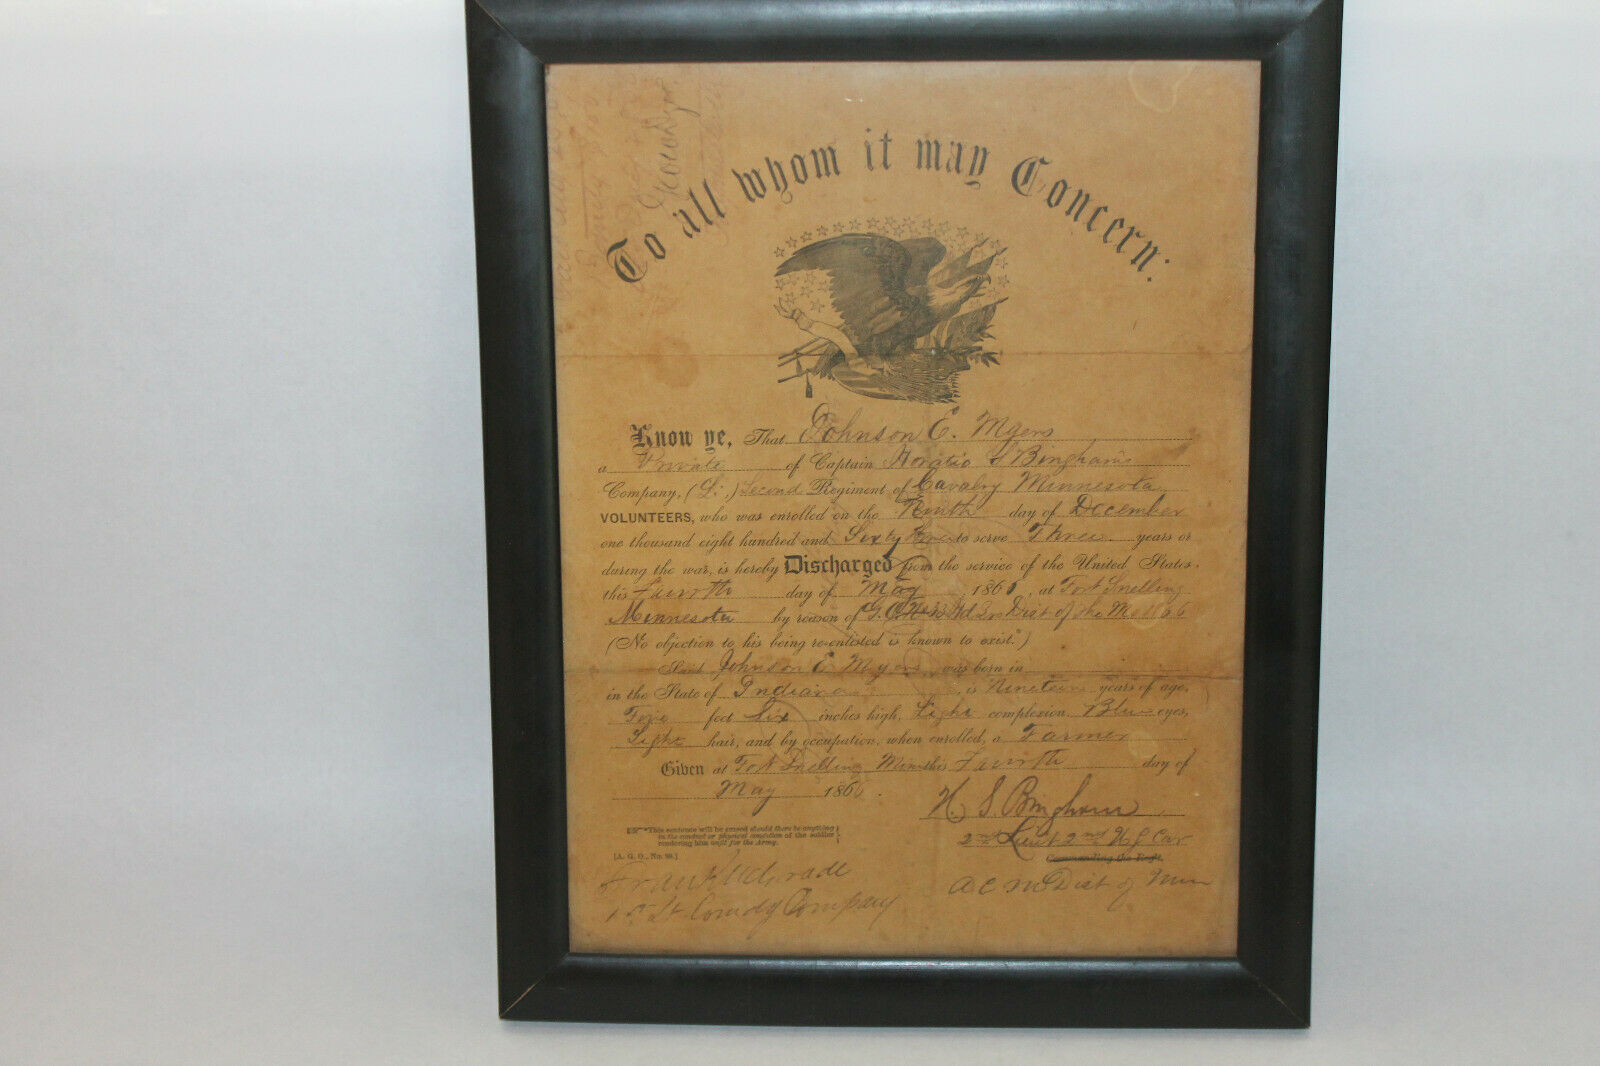 To all whom it may Concern:
Know ye, That Johnson E. Myers
a Private of Captain Horatio S Bingham's
Company, (L,) Second Regiment of Cavalry Minnesota
VOLUNTEERS, who was enrolled on the Ninth day of December
one thousand eight hundred and Sixty to serve Three years or
during the war, is hereby Discharged from the service of the United States,
this Fourth day of May 186 , at Fort Snelling
Minnesota by reason of G.O. Dist of the
(No objection to his being re-enlisted is known to exist.*)
Said Johnson E Myers was born in
in the State of Indiana , is Nineteen years of age,
Five feet Six inches high, Light complexion, Blue eyes,
Light hair, and by occupation, when enrolled, a Farmer
Given at Fort Snelling Minn this Fourth day of
May 1866.
H. S. Bingham
2nd Lieut 2nd Cav
Commanding the Regt.
A C M Dist of Minn
*This sentence will be erased should there be anything
in the conduct or physical condition of the soldier
rendering him unfit for the Army.
[A. G. O., No. 99.]
Frank
1st Lt Comdg Company